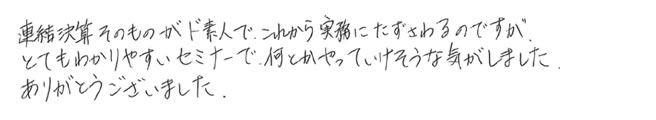 連結決算そのものがド素人で、これから実務にたずさわるのですが、
とてもわかりやすいセミナーで、何とかやっていけそうな気がしました.
ありがとうございました.